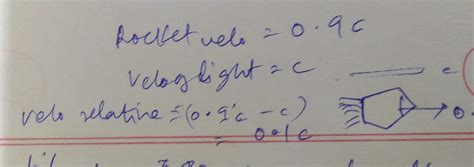 Rocket velo = 0.9c
velo of light = c
c
velo relative = (0.9c - c)
0.
= 0.1c